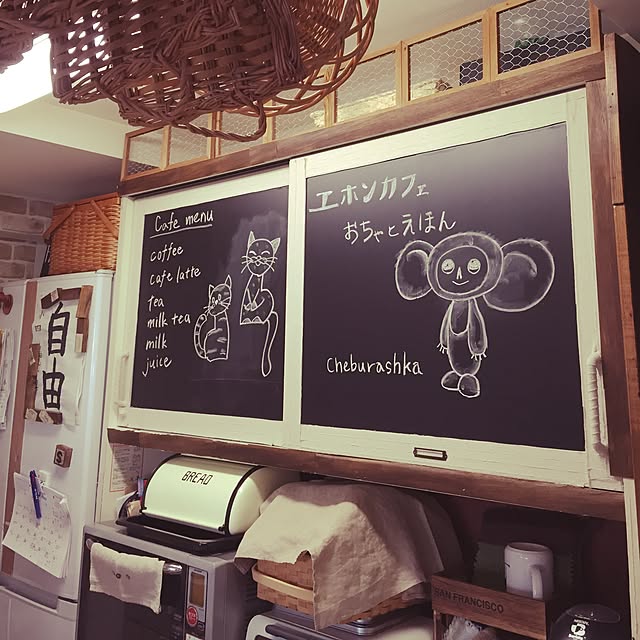 Cafe menu
coffee
cafe latte
Tea
milk tea
milk
juice
エホンカフェ
おちゃとえほん
Cheburashka
自由
S
BREAD
SAN FRANCISCO